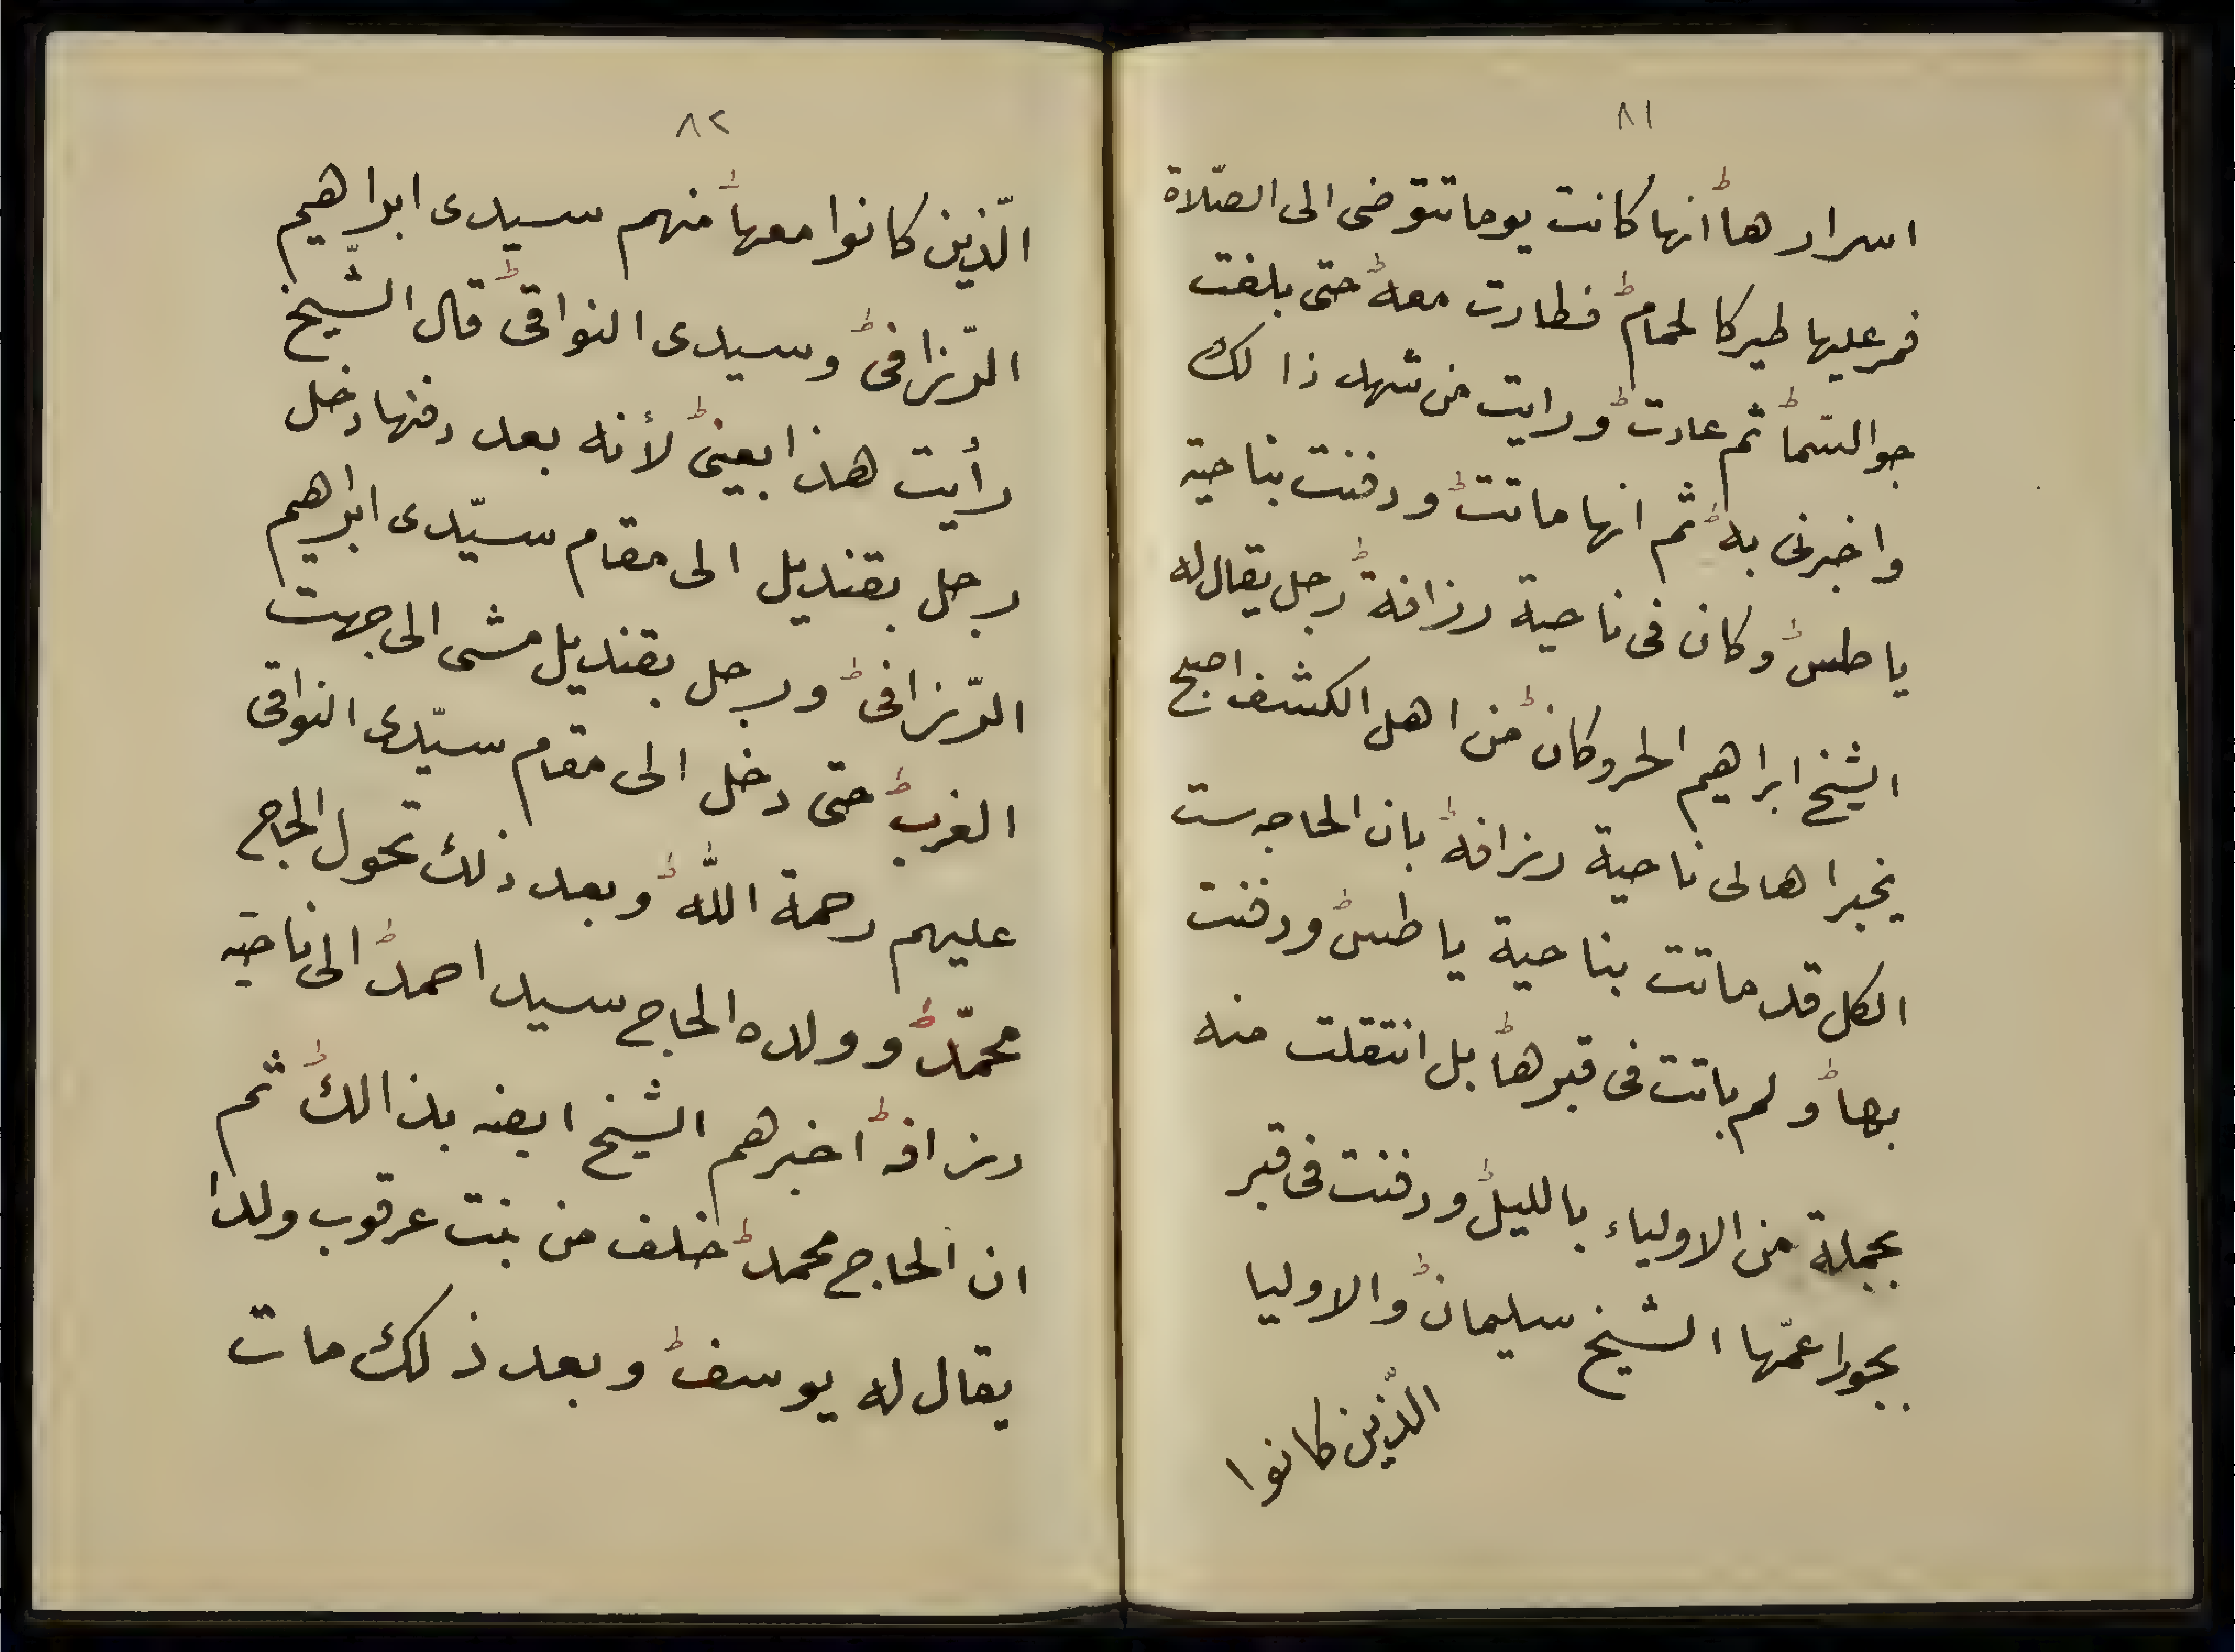 ٨١
اسرارها أنها كانت يوما تتوضى الى الصّلاة
فمر عليها طير كالحمام فطارت معه حتى بلغت
جو السّما ثم عادت ورايت من شهد ذالك
واخبرنى به ثم انها ماتت ودفنت بناحية
ياطس وكان فى ناحية رزافة رجل يقال له
الشيخ ابراهيم الحر وكان من اهل الكشف اصبح
يخبر اهالى ناحية رزافة بان الحاجه ست
الكل قد ماتت بناحية ياطس ودفنت
بها ولم باتت فى قبرها بل انتقلت منه
بجملة من الاولياء بالليل ودفنت فى قبر
بجورا عمّها الشيخ سليمان والاوليا
الّذين كانوا
٨٢
الّذين كانوا معها منهم سيدى ابراهيم
الرّزافى وسيدى النواقى قال الشّيخ
رأيت هذا بعينى لأنه بعد دفنها دخل
رجل بقنديل الى مقام سيّدى ابراهيم
الرّزافى ورجل بقنديل مشى الى جهت
الغرب حتى دخل الى مقام سيّدى النواقى
عليهم رحمة اللّه وبعد ذلك تحول الحاج
محمّد وولده الحاج سيد احمد الى ناحيه
رزافه اخبرهم الشيخ ابضه بذالك ثم
ان الحاج محمد خلف من بنت عرقوب ولدا
يقال له يوسف وبعد ذلك مات